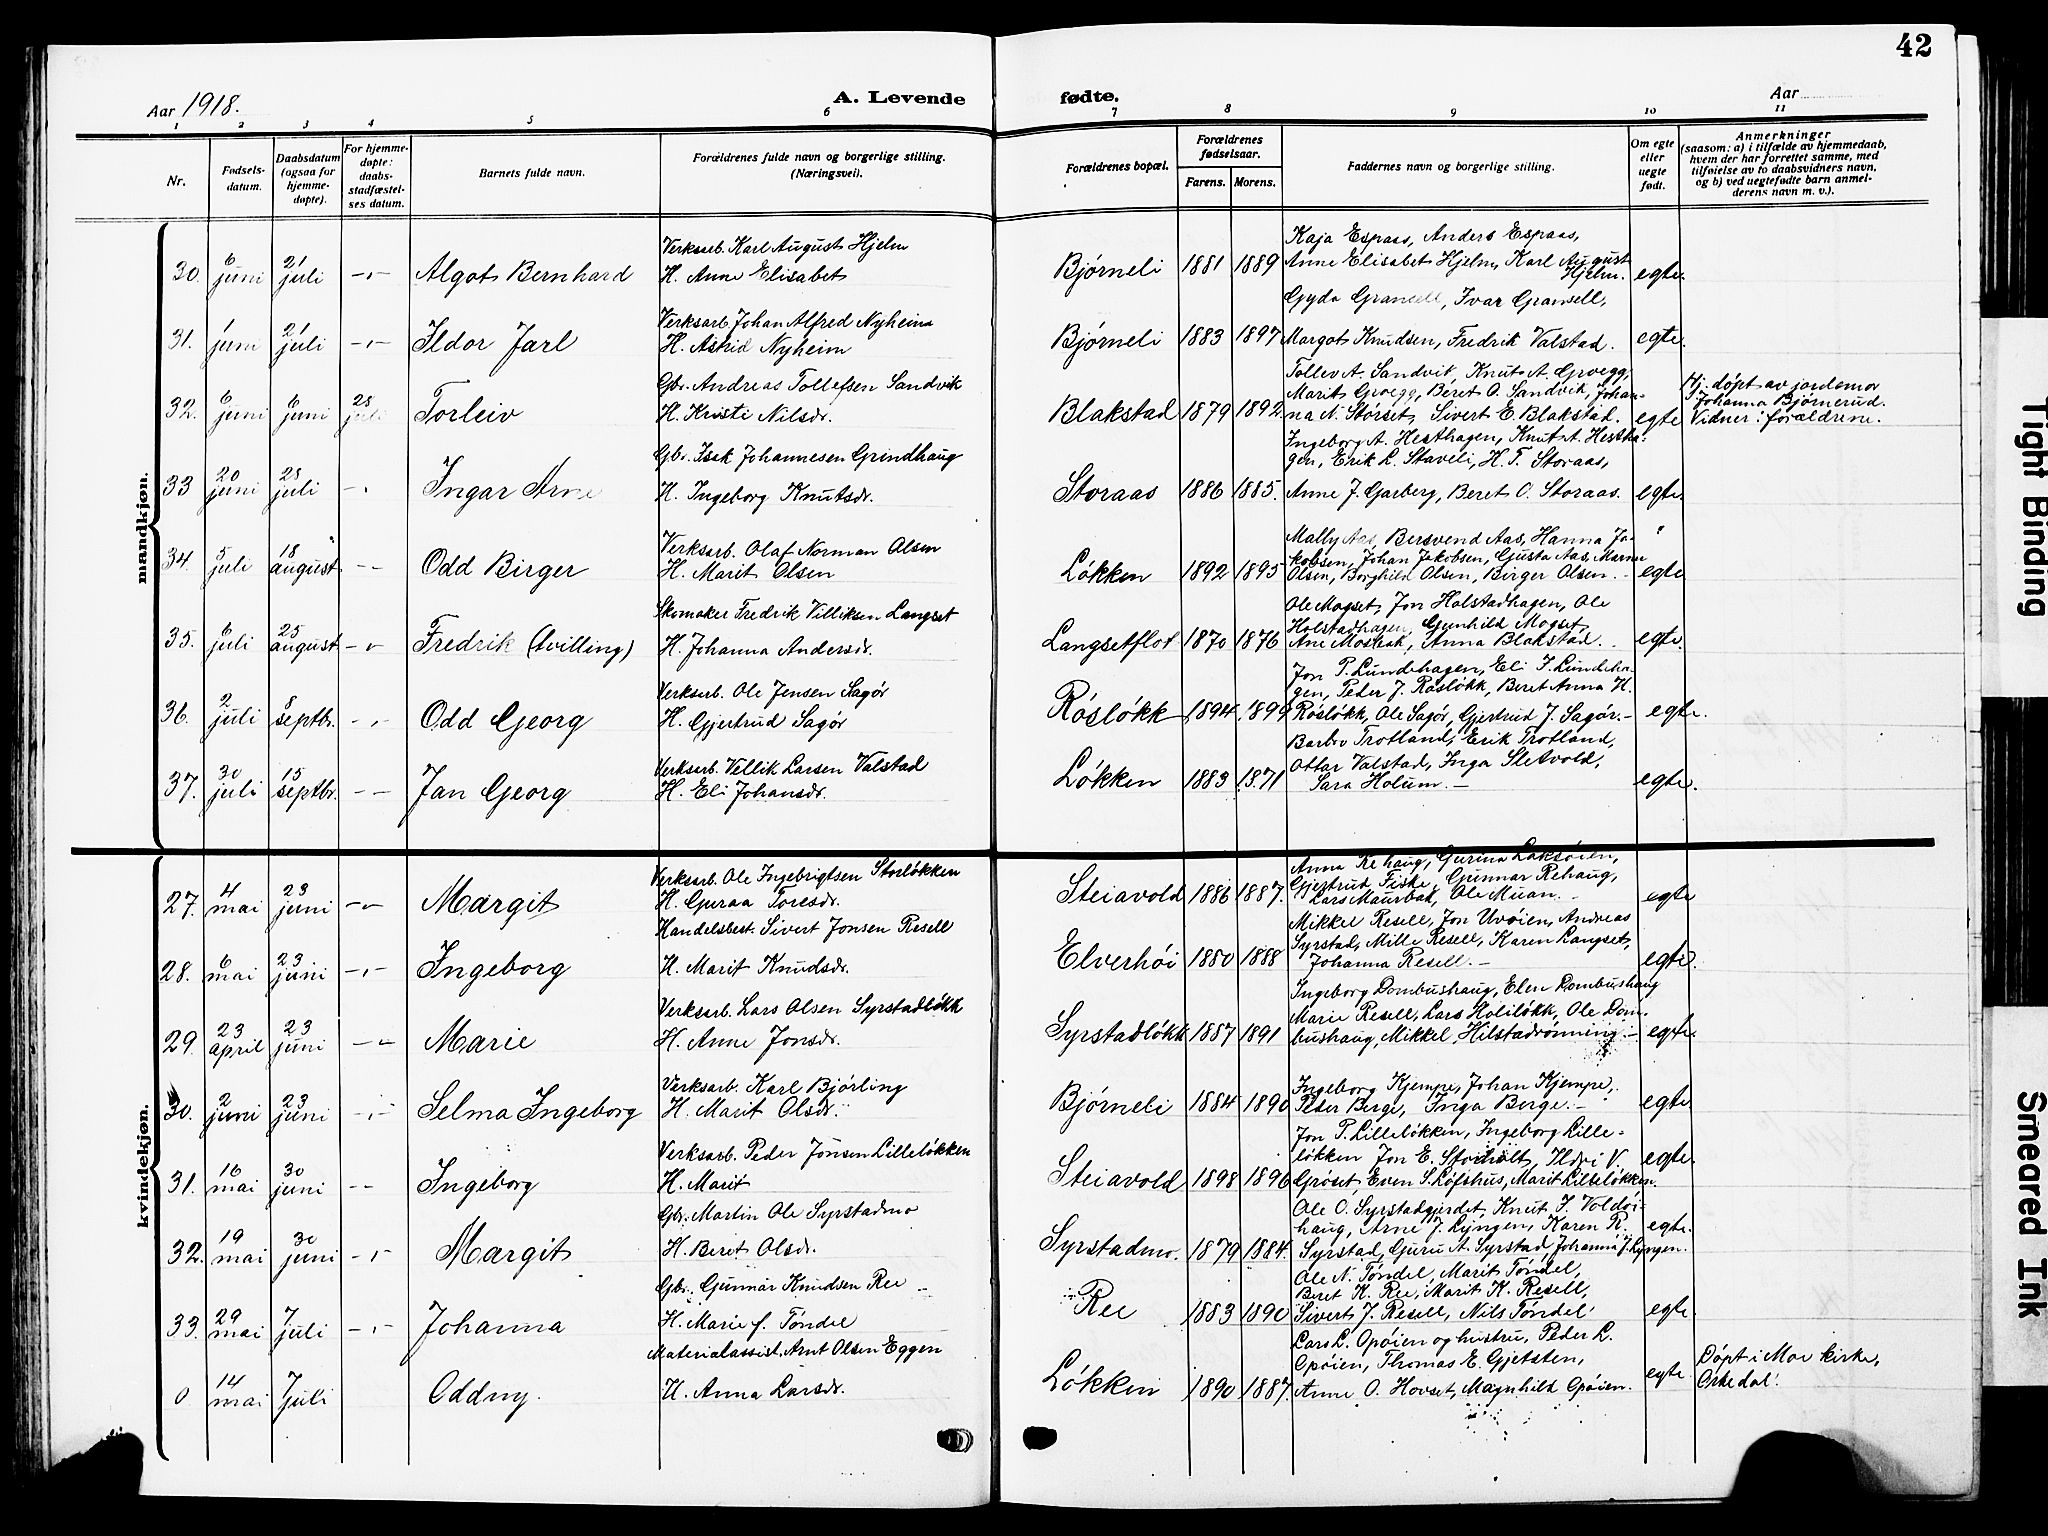 42
Aar 1918.
A. Levende fødte.
Aar
1 2 3 4 5 6 7 8 9 10 11
Nr.
Fødsels-
datum.
Daabsdatum
(ogsaa for
hjemme-
døpte).
For hjemme-
døpte:
daabs-
stadfæstel-
ses datum.
Barnets fulde navn.
Forældrenes fulde navn og borgerlige stilling.
(Næringsvei).
Forældrenes bopæl.
Forældrenes
fødselsaar.
Farens. Morens.
Faddernes navn og borgerlige stilling.
Om egte
eller
uegte
født.
Anmerkninger
(saasom: a) i tilfælde av hjemmedaab,
hvem der har forrettet samme, med
tilføielse av to daabsvidners navn,
og b) ved uegtefødte barn anmel-
derens navn m. v.).
mandkjøn.
30. 6 juni 21 juli Algot Bernhard
Verksarb. Karl August Hjelm
H. Anne Elisabet
Bjørneli 1881 1889
Kaja Espaas, Anders Espaas,
Anne Elisabet Hjelm, Karl August
Hjelm. egte.
31. 1 juni 21 juli Ildor Jarl
Verksarb. Johan Alfred Nyheim
H. Astrid Nyheim
Bjørneli 1883 1897
Gyda Gransell, Ivar Gransell,
Margot Knudsen, Fredrik Valstad. egte.
32. 6 juni 6 juni 28 juli Torleiv
Gbr. Andreas Tollefsen Sandvik
H. Kristi Nilsdr.
Blakstad 1879 1892
Tollev A. Sandvik, Knut A. Groegg,
Marit Groegg, Beret O. Sandvik, Johan-
na N. Størset, Sivert E. Blakstad. egte
Hj. døpt av jordemor
Johanna Bjørnerud.
Vidner: forældrene.
33 20 juni 28 juli Ingar Arne
Gbr. Isak Johannesen Grindhaug
H. Ingeborg Knutsdr.
Storaas 1886 1885.
Ingeborg A. Hesthagen, Knut A. Hestha-
gen, Erik L. Staveli, H. T. Storaas,
Anne J. Garberg, Beret O. Storaas. egte.
34. 5 juli 18 august Odd Birger
Verksarb. Olaf Norman Olsen
H. Marit Olsen
Løkken 1892 1895
Mally Aas, Bersvend Aas, Hanna Ja-
kobsen, Johan Jakobsen, Gusta Aas,
Olsen, Borghild Olsen, Birger Olsen. egte
35. 6 juli 25 august Fredrik (tvilling)
Skomaker Fredrik Villiksen Langset
H. Johanna Andersdr.
Langsetflot 1870 1876
Ole Mogset, Jon Holstadhagen, Ole
Holstadhagen, Gunhild Mogset,
Ane Mosbak, Anna Blakstad. egte.
36. 2 juli 8 septbr. Odd Georg
Verksarb. Ole Jensen Sagør
H. Gjertrud Sagør
Røsløkk 1894 1899
Jon P. Lundehagen, Eli I. Lundeha-
gen, Peder J. Røsløkk, Beret Anna H.
Røsløkk, Ole Sagør, Gjertrud J. Sagør. egte.
37. 30 juli 15 septbr. Jan Georg
Verksarb. Vellik Larsen Valstad
H. Eli Johansdr.
Løkken 1883 1871
Barbro Trotland, Erik Trotland,
Ottar Valstad, Inga Sletvold,
Sara Holum. egte.
kvindekjøn.
27. 4 mai 23 juni Margit
Verksarb. Ole Ingebrigtsen Storløkken
H. Guraa Toresdr.
Steiavold 1886 1887.
Anna Rehaug, Gurina Laksøien,
Gjertrud Fiske, Gunnar Rehaug,
Lars Maurbak, Ole Muan. egte
28. 6 mai 23 juni Ingeborg
Handelsbest. Sivert Jonsen Resell
H. Marit Knudsdr.
Elverhøi 1880 1888
Mikkel Resell, Jon Uvøien, Andreas
Syrstad, Mille Resell, Karen Langset,
Johanna Resell. egte.
29. 23 april 23 juni Marie
Verksarb. Lars Olsen Syrstadløkk
H. Anne Jonsdr.
Syrstadløkk 1887 1891
Ingeborg Dombushaug, Elen Dombushaug
Marie Resell, Lars Holiløkk, Ole Dom-
bushaug, Mikkel Hilstadrønning. egte.
30. 2 juni 23 juni Selma Ingeborg
Verksarb. Karl Bjørling
H. Marit Olsdr.
Bjørneli 1884 1890
Ingeborg Kjempe, Johan Kjempe,
Peder Berge, Inga Berge. egte
31. 16 mai 30 juni Ingeborg
Verksarb. Peder Jonsen Lilleløkken
H. Marit
Steiavold 1898 1896
Jon P. Lilleløkken, Ingeborg Lille-
løkken Jon E. Storholt, Ildri V.
Grøset Even S. Løfshus, Marit Lilleløkken. egte.
32. 19 mai 30 juni Margit
Gbr. Martin Ole Syrstadmo
H. Beret Olsdr.
Syrstadmo. 1879 1884.
Ole O. Syrstadgjerdet, Knut I. Voldøi-
haug, Arne J. Lyngen, Karen R.
Syrstad, Guru A. Syrstad, Johanna J. Lyngen. egte.
33. 29 mai 7 juli Johanna
Gbr. Gunnar Knudsen Ree
H. Marie f. Tøndel
Ree 1883 1890
Ole N. Tøndel, Marit Tøndel,
Beret K. Ree, Marit K. Resell,
Sivert J. Resell, Nils Tøndel egte.
0 14 mai 7 juli Oddny.
Materialassist. Arnt Olsen Eggen
H. Anna Larsdr.
Løkken 1890 1887.
Lars L. Opøien og hustru, Peder L.
Opøien, Thomas E. Gjetsten,
Anne O. Hovset, Magnhild Opøien. egte.
Døpt i Moe kirke,
Orkedal.
Tight Binding
Smeared Ink